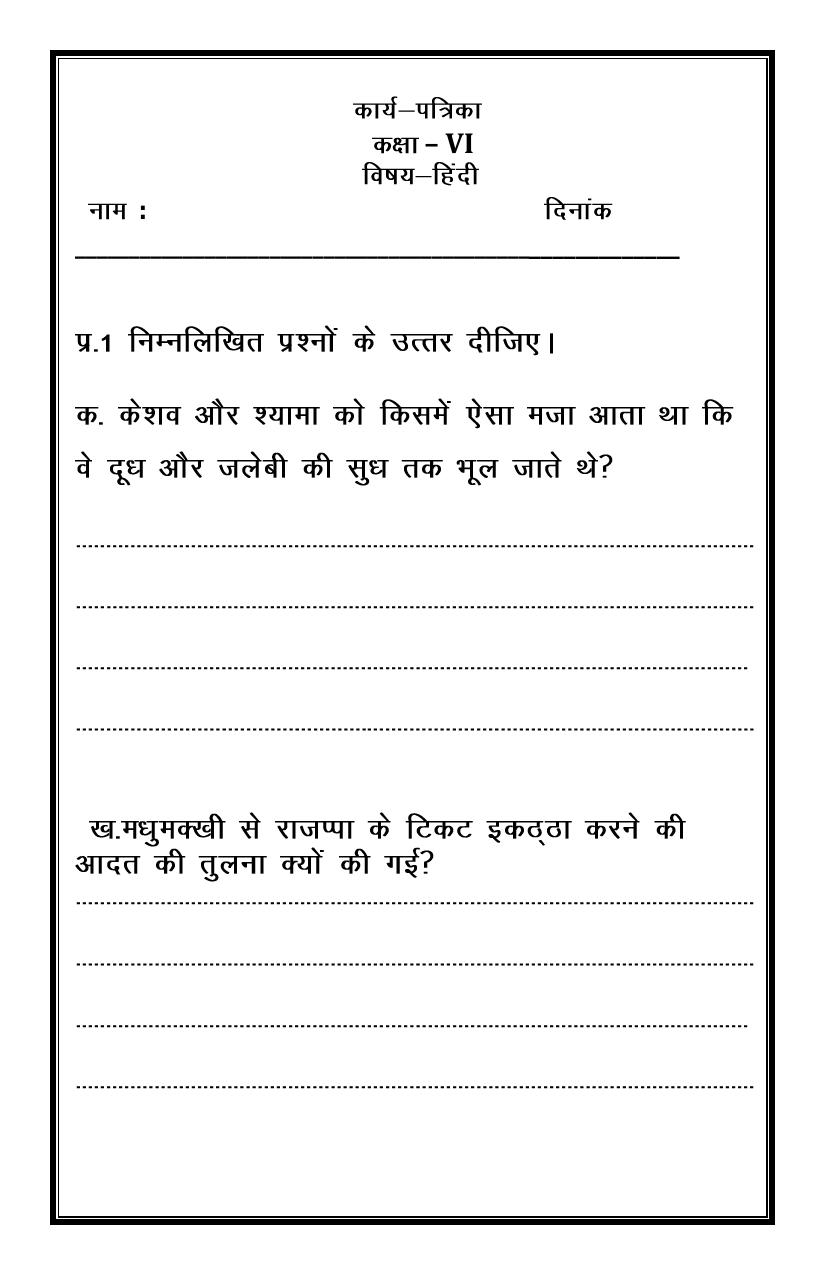 कार्य–पत्रिका
कक्षा – VI
विषय–हिंदी
नाम : दिनांक
प्र.1 निम्नलिखित प्रश्नों के उत्तर दीजिए।
क. केशव और श्यामा को किसमें ऐसा मजा आता था कि
वे दूध और जलेबी की सुध तक भूल जाते थे?
ख.मधुमक्खी से राजप्पा के टिकट इकठ्ठा करने की
आदत की तुलना क्यों की गई?